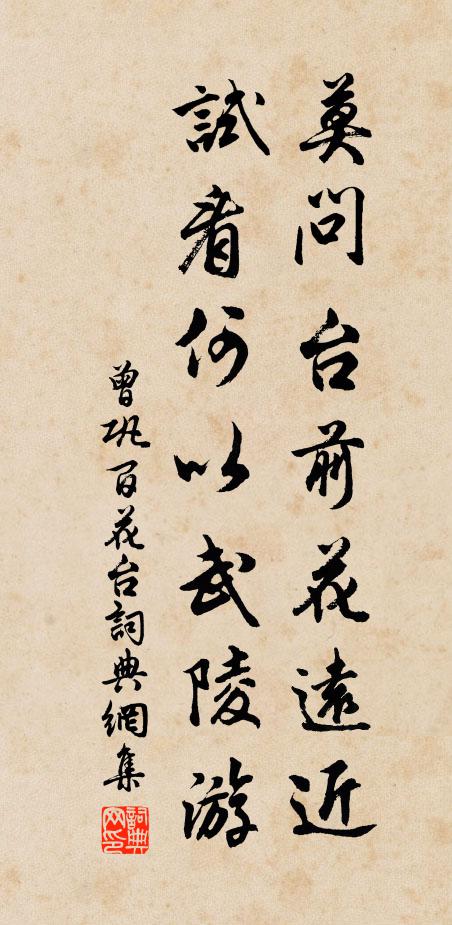 莫问台前花遠近
試看何以武陵游
曾巩百花台詞典網集
詞典网印